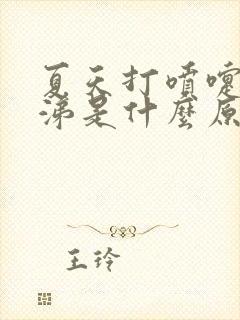 夏天打喷嚏
涕是什麼原
王玲